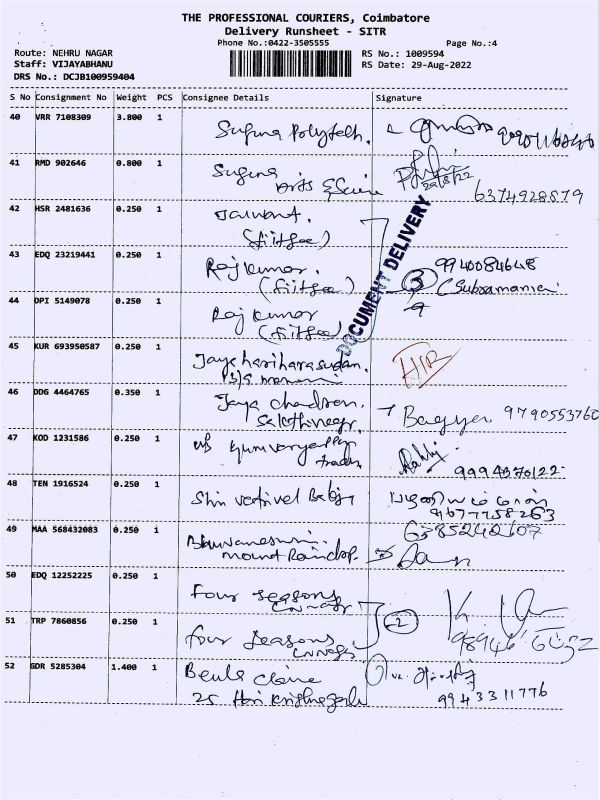 THE PROFESSIONAL COURIERS, Coimbatore
Delivery Runsheet - SITR
Phone No.:0422-3505555 Page No.:4
Route: NEHRU NAGAR RS No.: 1009594
Staff: VIJAYABHANU RS Date: 29-Aug-2022
DRS No.: DCJB100959404
S No Consignment No Weight PCS Consignee Details Signature
40 VRR 7108309 3.800 1
Suguna Polytech.
41 RMD 902646 0.800 1
Suguna
Arts & Scien
29/8/22
6374928879
42 HSR 2481636 0.250 1
Jaswant.
(fiitjee)
DOCUMENT DELIVERY
43 EDQ 23219441 0.250 1
Rajkumar.
(fiitjee)
3
9940084648
(Subramani
44 OPI 5149078 0.250 1
Raj kumar
(fiitjee)
45 KUR 693950587 0.250 1
Jayahariharasudan.
46 DDG 4464765 0.350 1
Jaya chandran.
Sakthinagr.
9790553760
47 KOD 1231586 0.250 1
9994370122
48 TEN 1916524 0.250 1
Shri vetrivel
9677758263
49 MAA 568432083 0.250 1
Bhuvaneswari.
mount Raindrop.
6385242607
50 EDQ 12252225 0.250 1
Four seasons
2
51 TRP 7860856 0.250 1
four seasons
52 GDR 5285304 1.400 1
Beula
25 Hari
9943311776